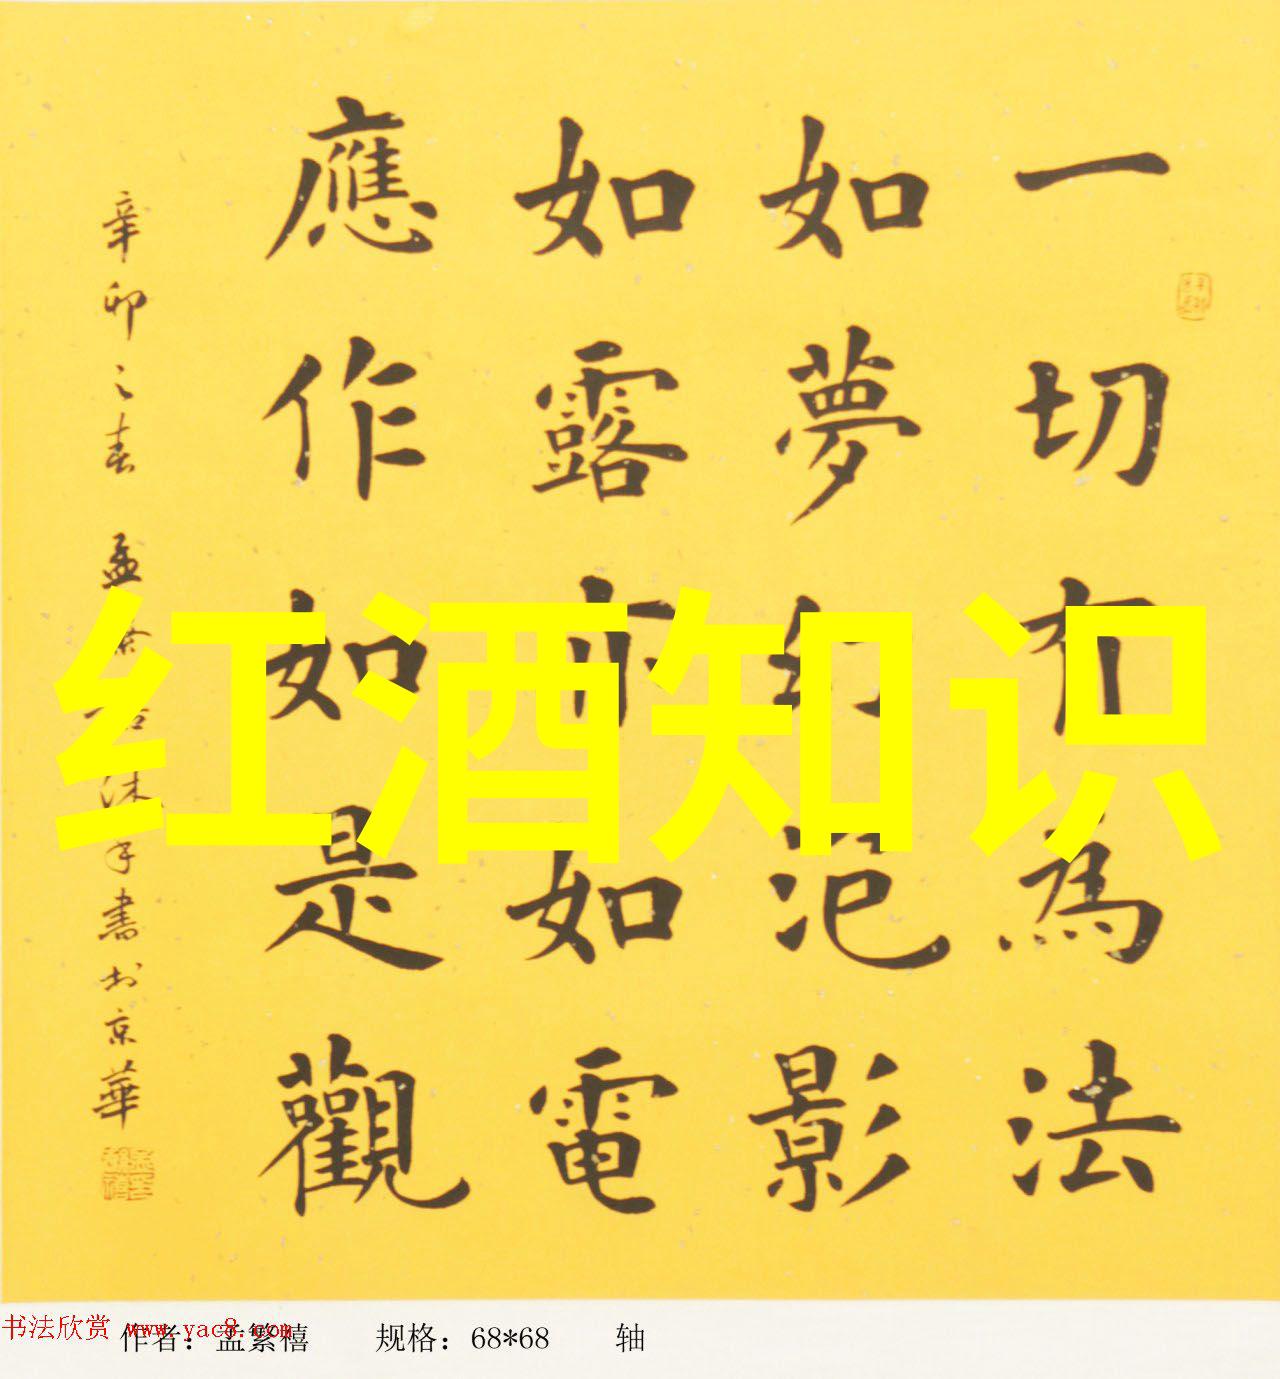 一切有為法
如夢幻泡影
如露亦如電
應作如是觀
辛卯之春 孟繁禧沐手書於京華
红酒知识
书法欣赏 www.yac8.com
作者：孟繁禧 规格：68*68 轴